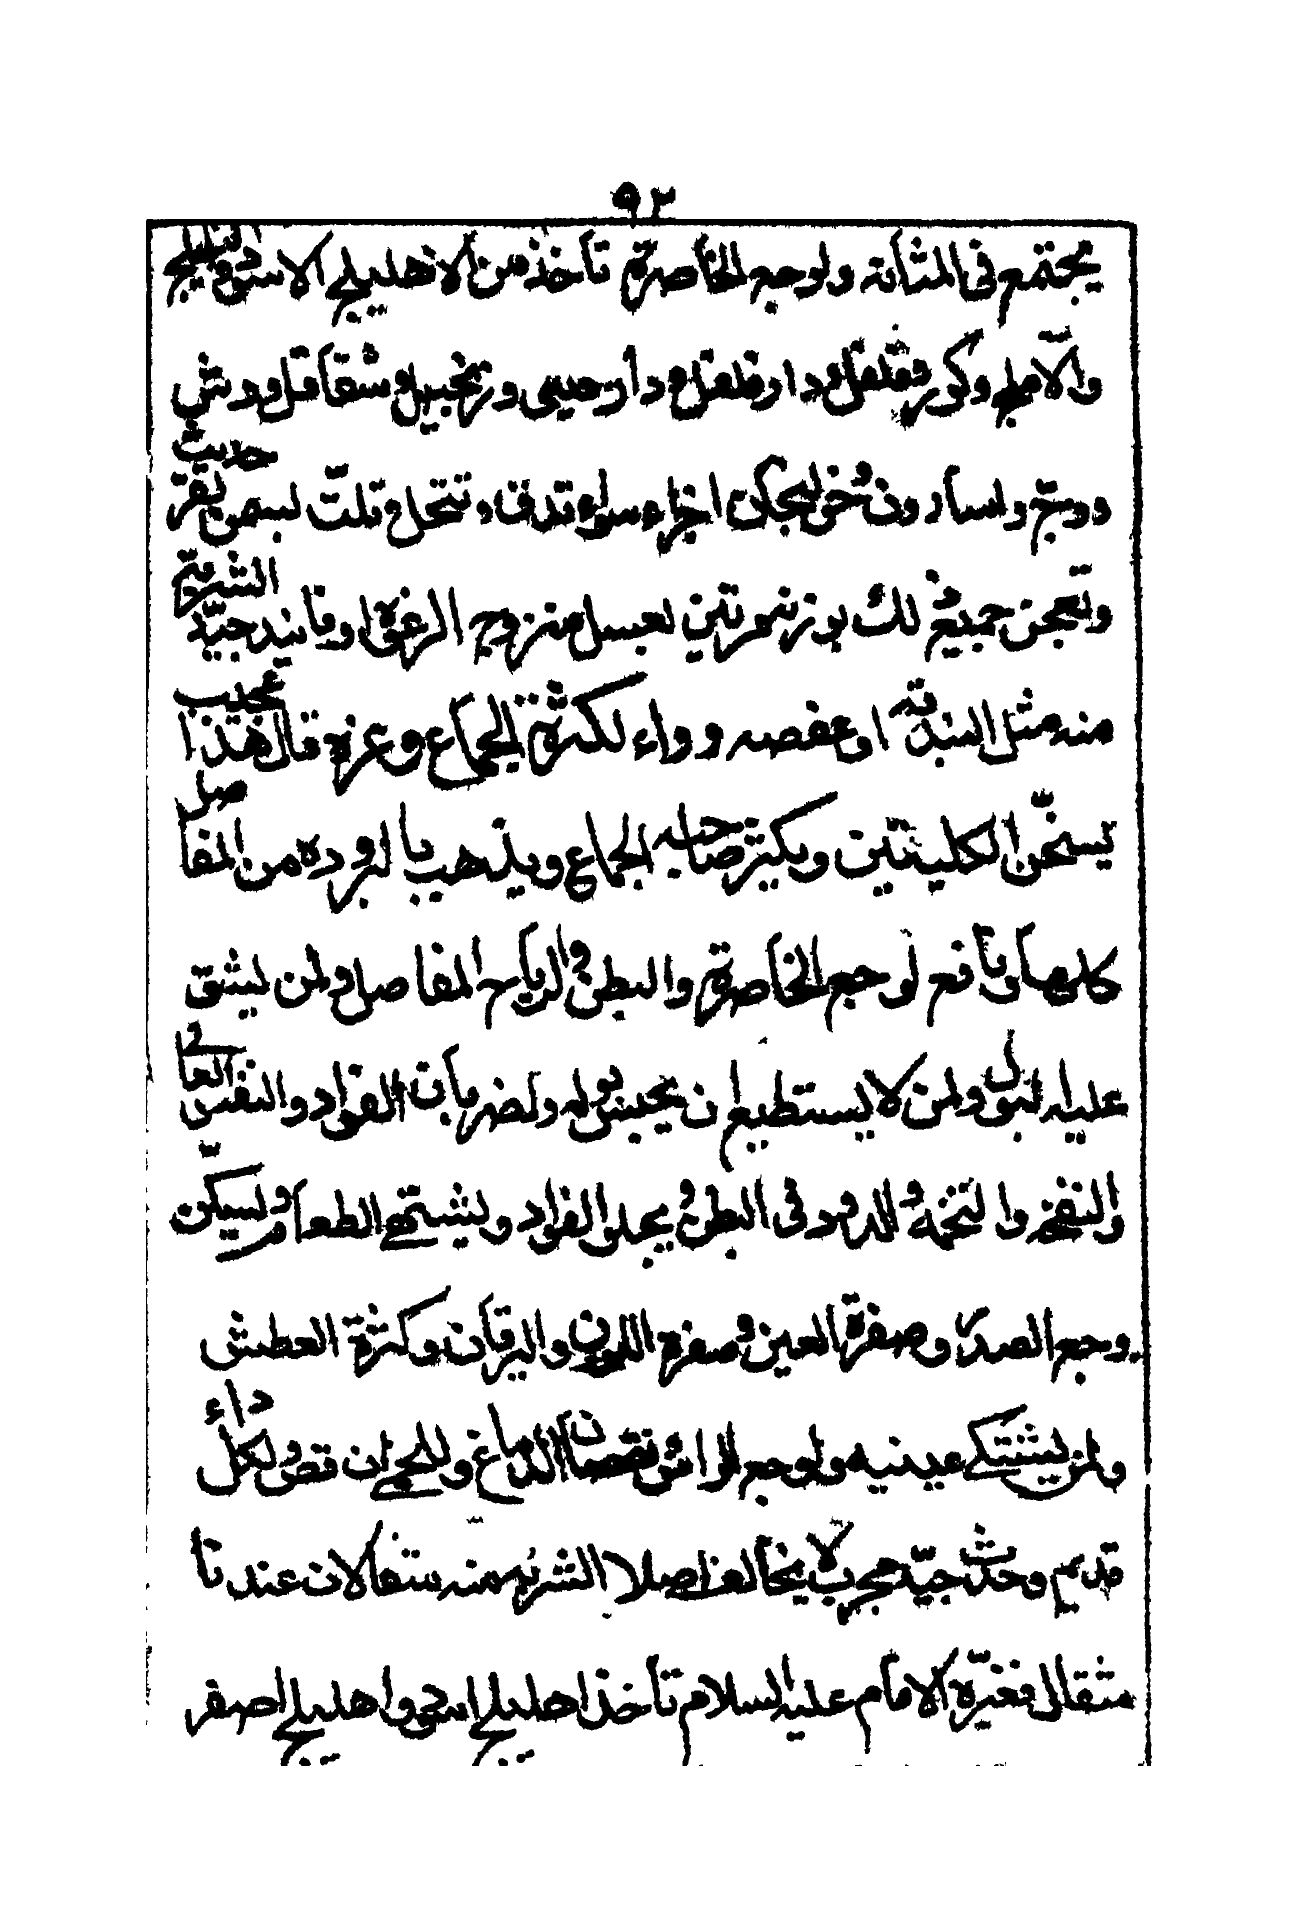 ٩٣
يجتمع في المثانة ولوجع الخاصرة تأخذ من الاهليلج الاسود والبليلج
والاملج وكور وفلفل ودار فلفل ودارصيني وزنجبيل وشقاقل
ووج واسارون وخولنجان اجزاء سواء وتدق وتنخل وتلت بسمن بقر
حديث وتعجن جميع ذلك بوزنه مرتين بعسل منزوع الرغوة او فانيد جيد الشربة
منه مثل البندقة او عفصه وواء لكثرة الجماع وغزة قال هذا عجيب
يسخن الكليتين ويكثر صاحبه الجماع ويذهب بالبرودة من المفاصل
كلها ونافع لوجع الخاصرة والبطن والرياح المفاصل ولمن يشق
عليه البول ولمن لا يستطيع ان يحبس بوله ولضربان الفواد والنفس العالي
والنفخ والتخمة والدود في البطن ويجلو الفواد ويشتهي الطعام ويسكن
وجع الصدر وصفرة العين وصفرة اللون واليرقان وكثرة العطش
ولمن يشتكي عينيه ولوجع الراس ونقصان الدماغ وللحمى ناقض ولكل داء
قديم وحديث جيد مجرب لا يخالف اصلا الشربة منه مثقالان عندنا
مثقال فغيره الامام عليه السلام تأخذ اهليلج اسود واهليلج اصفر